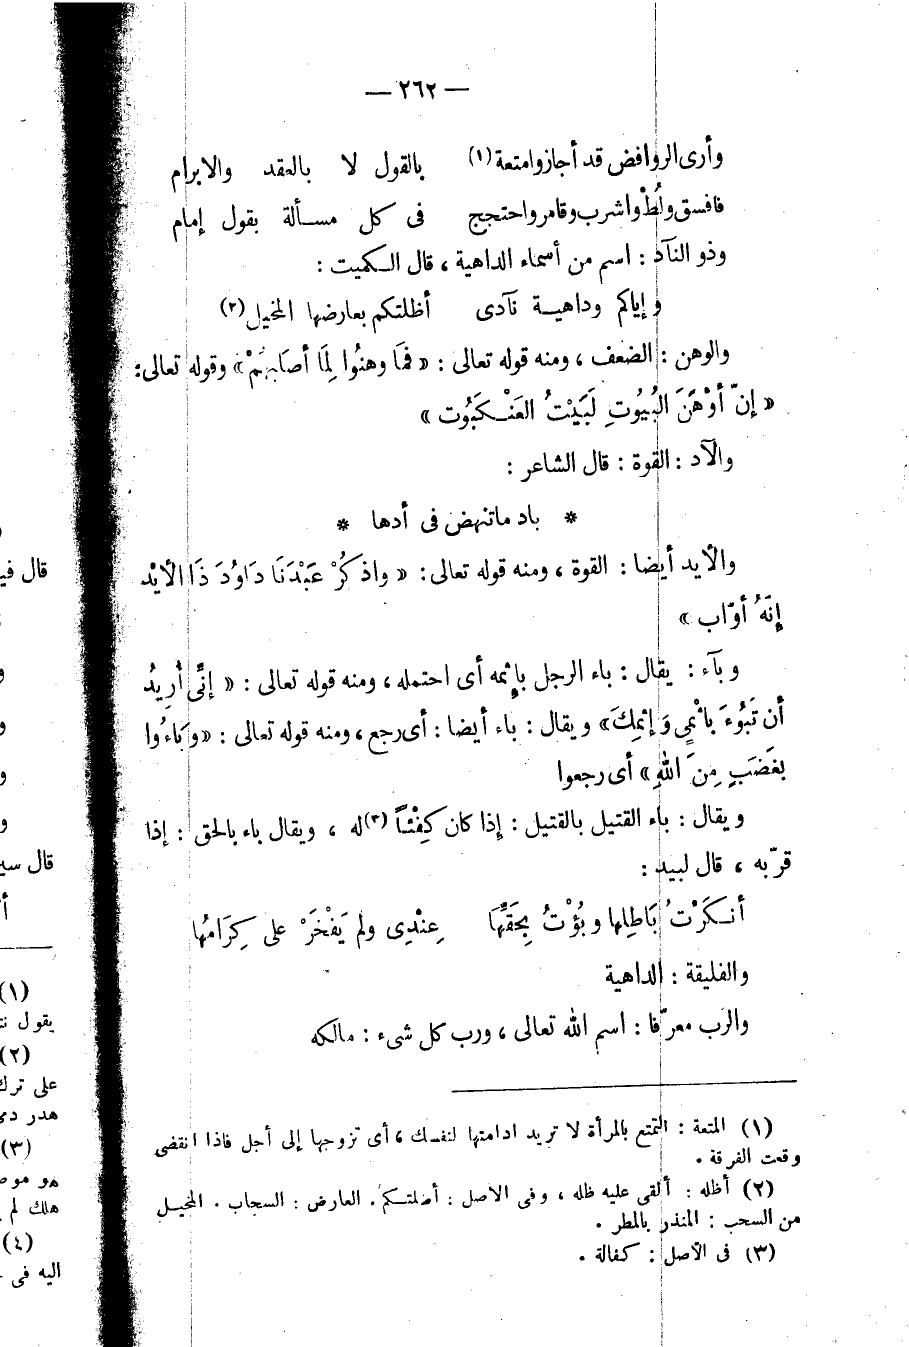 — ٢٦٢ —
وأرى الروافض قد أجازوا متعة (١) بالقول لا بالعقد والابرام
فافسق ولُطْ واشرب وقامر واحتجج فى كل مسألة بقول إمام
وذو النآد : اسم من أسماء الداهية ، قال الكميت :
وإياكم وداهية نآدى أظلتكم بعارضها المخيل (٢)
والوهن : الضعف ، ومنه قوله تعالى : « فمَا وهنُوا لِمَا أصابهُمْ » وقوله تعالى :
« إنّ أوْهَنَ البُيُوتِ لَبَيْتُ العَنْكَبُوت »
والآد : القوة : قال الشاعر :
* باد ماتنهض فى أدها *
والأيد أيضا : القوة ، ومنه قوله تعالى : « واذكُرْ عَبْدَنَا دَاوُدَ ذَا الأيْد
إنّهُ أوّاب »
وبآء : يقال : باء الرجل بإثمه أى احتمله ، ومنه قوله تعالى : « إنِّى أُرِيدُ
أن تَبُوءَ بإثمِي وَإثمِكَ » ويقال : باء أيضا : أى رجع ، ومنه قوله تعالى : « وبَاءُوا
بغَضَبٍ مِنَ اللهِ » أى رجعوا
ويقال : باء القتيل بالقتيل : إذا كان كِفْئاً (٣) له ، ويقال باء بالحق : إذا
قرّبه ، قال لبيد :
أنكَرْتُ بَاطِلها وبُؤْتُ بِحَقِّهَا عِنْدِى ولم يَفْخَرْ على كِرَامُها
والفليقة : الداهية
والرب معرّفا : اسم الله تعالى ، ورب كل شىء : مالكه
(١) المتعة : التمتع بالمرأة لا تريد ادامتها لنفسك ، أى تزوجها إلى أجل فاذا انقضى
وقعت الفرقة .
(٢) أظله : ألقى عليه ظله ، وفى الأصل : أضلتكم . العارض : السحاب . المخيل
من السحب : المنذر بالمطر .
(٣) فى الأصل : كفالة .
قال في
قال سي
أ
(١)
يقول
(٢)
على ترك
هدر دم
(٣)
هو مو
هلك لم
(٤)
اليه فى